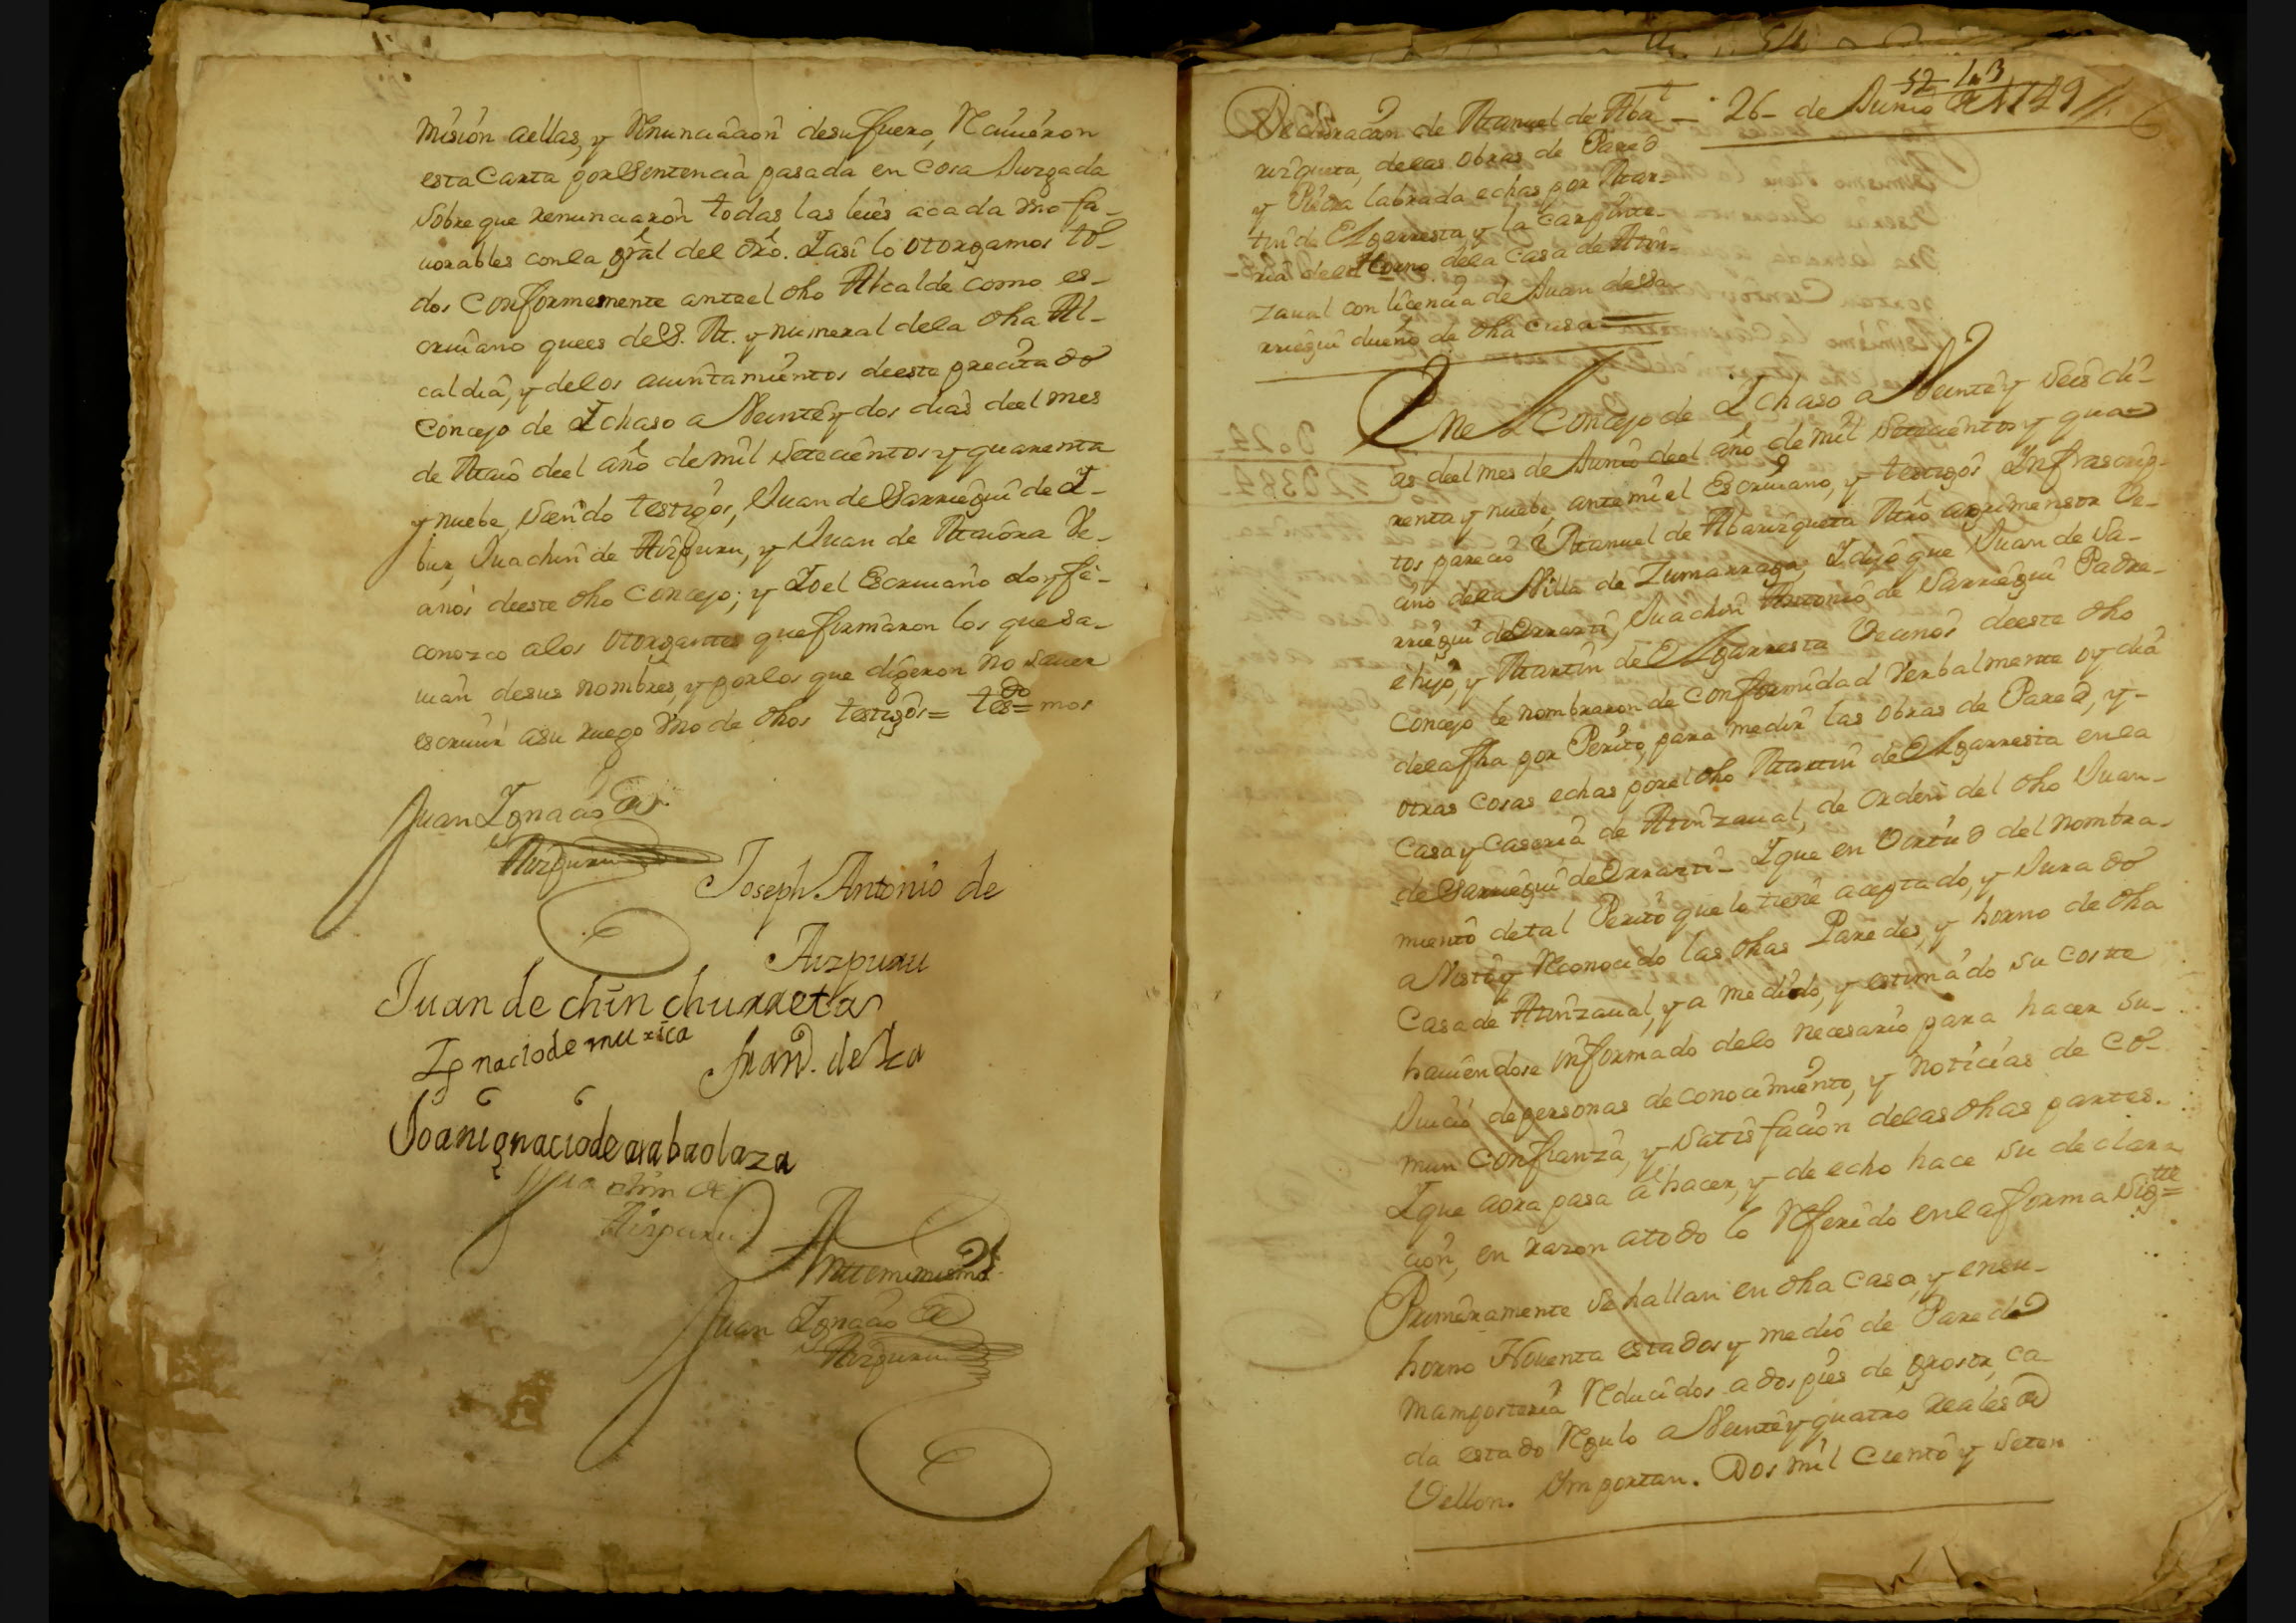 mision aellas, y Renunciacion desufuero, Recivieron
esta Carta por Sentencia pasada en Cosa Juzgada
Sobre que renunciaron todas las leies acada vno fa-
uorables conla gral del dro. Iasi lo otorgamos to-
dos Conformemente anteel dho Alcalde como es-
criuano quees deS. M. y numeral dela dha Al-
caldia, y delos aiuntamientos deeste precitado
Concejo de Ichaso a Veinte y dos dias deel mes
de Maio deel año de mil setecientos y quarenta
y nuebe, siendo testigos, Juan de Sarriegui de I-
bur, Juachin de Aizpuru, y Juan de Maiora Ve-
cinos deeste dho Concejo; y Io el Escriuano doy fe-
conozco alos otorgantes que firmaron los que sa-
uian desus nombres, y por los que digeron no sauer
escriuir asu ruego vno de dhos testigos= tes= mos
Juan Ignacio de
Aizpuru
Joseph Antonio de
Aizpuru
Juan de chin churreta
Ignacio de muxica
fran. de
Joanignaciode arabaolaza
Juachin de
Aizpuru
Antemimismo
Juan Ignacio de
Aizpuru
Declaracion de Manuel de Aba-
rizqueta, delas obras de Pared
y Piedra labrada echas por Mar-
tin de Elgarresta y la carpinte-
ria del Horno dela Casa de Min-
zaual con licencia de Juan de Sa-
rriegui dueño de dha casa
26 - de Junio de 1749
52 13
Ene l Concejo de Ichaso a Veinte y seis di-
as deel mes de Junio deel año de mil Setecientos y qua-
renta y nuebe, ante mi el Escriuano, y testigos Infrascrip-
tos parecio Manuel de Abarizqueta Mro agrimensor Ve-
cino dela Villa de Zumarraga, Idijo que Juan de Sa-
rriegui de Orrarti, Juachin Antonio de Sarriegui Padre-
e hijo, y Martin de Elgarresta Vecinos deeste dho
Concejo le nombraron de Conformidad Verbalmente oy dia
delafha por Perito, para medir las obras de Pared, y-
otras Cosas echas porel dho Martin de Elgarresta en la
Casa y Caseria de Minzaual, de orden del dho Juan-
de Sarriegui de Orrarti- Ique en Virtud del nombra-
miento detal Perito que lo tiene aceptado, y Jurado
a Visto y Reconocido las dhas Paredes, y horno de dha
Casa de Minzaual, y a medido, y estimado su Coste
hauiendose informado delo necesario para hacer su-
Juicio depersonas de conocimiento, y noticias de Co-
mun Confianza, y satisfacion delas dhas partes.
Ique aora pasa a hacer, y de echo hace su declara
cion, en razon atodo lo Referido en la forma sigtte=
Primeramente se hallan en dha Casa, y ensu-
horno Nouenta estados y medio de Pared de
mamposteria Reducidos a dos pies de groste, ca-
da estado Regulo a Veinte y quatro reales de
Vellon. Importan. Dos mil Ciento y seten